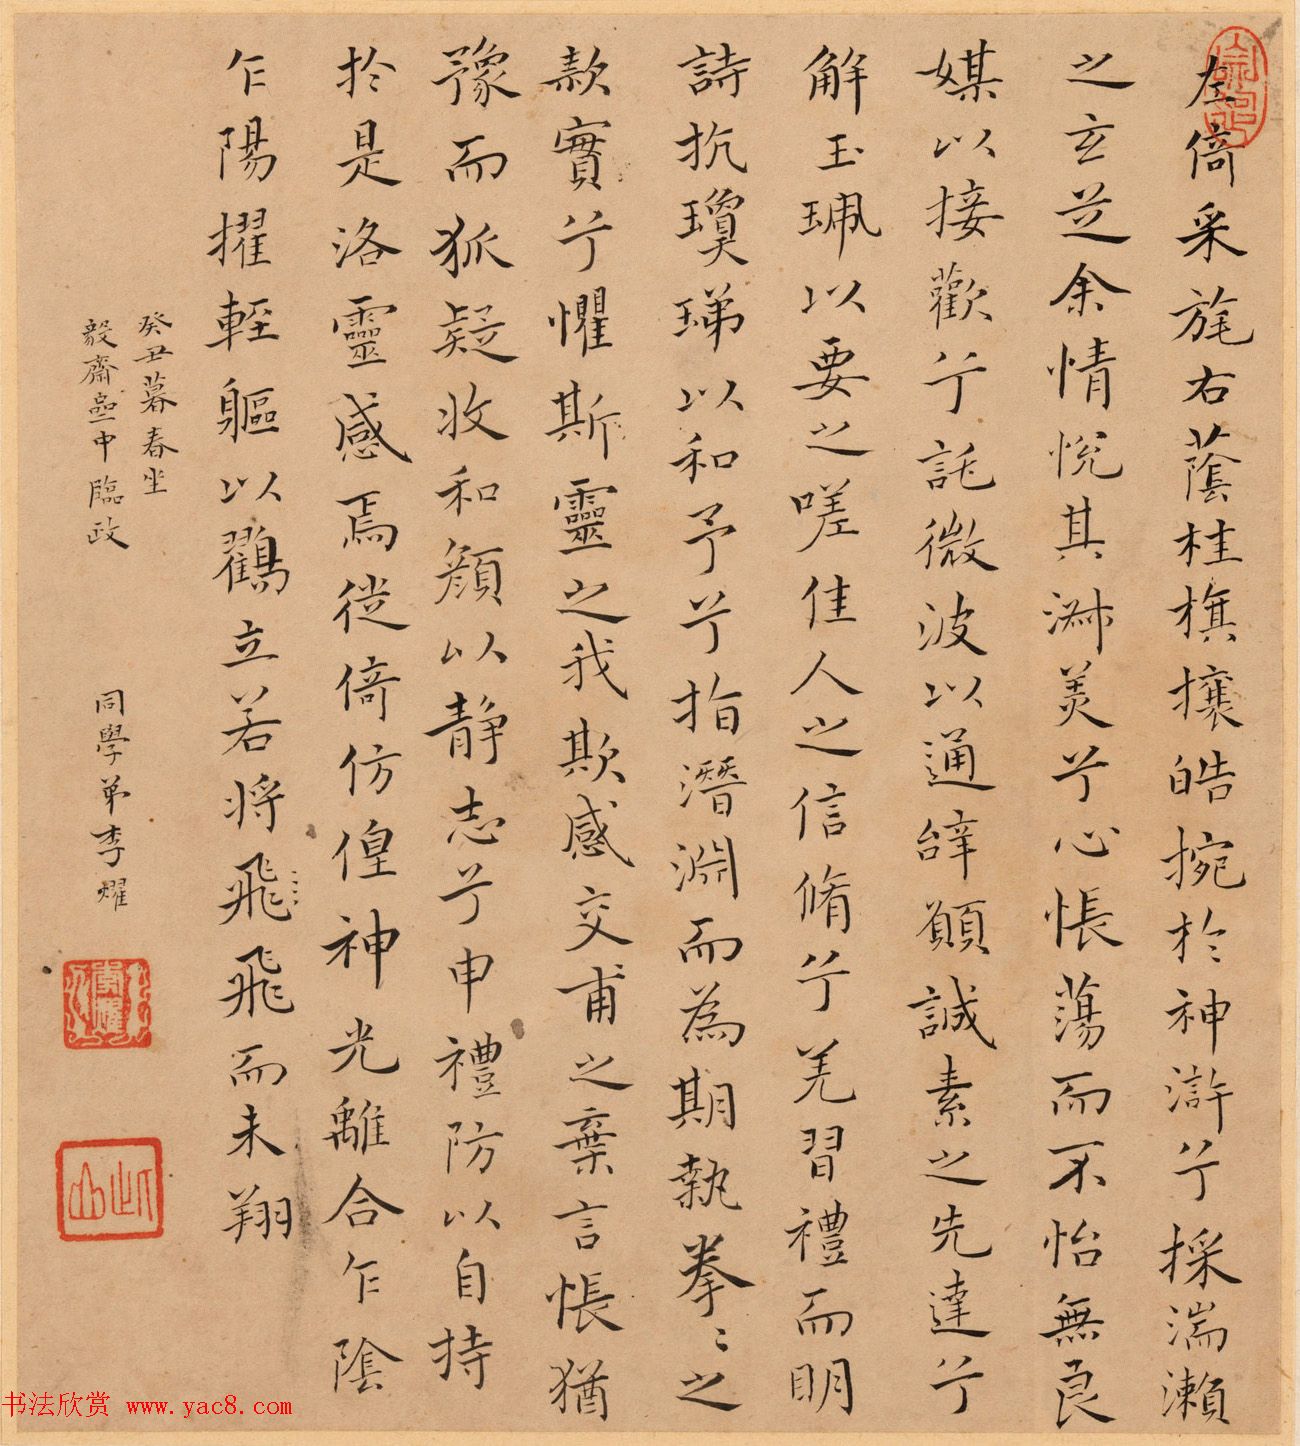 左倚采旄右蔭桂旗攘皓捥於神滸兮採湍瀨
之玄芝余情悅其淑美兮心悵蕩而不怡無良
媒以接歡兮託微波以通辭願誠素之先達兮
解玉珮以要之嗟佳人之信脩兮羌習禮而明
詩抗瓊珶以和予兮指潛淵而為期執拳〻之
款實兮懼斯靈之我欺感交甫之棄言悵猶
豫而狐疑收和顏以静志兮申禮防以自持
於是洛靈感焉徙倚仿偟神光離合乍陰
乍陽擢輕軀以鸖立若将飛飛而未翔
癸丑暮春坐
毅齋壺中臨政
同學弟李燿
书法欣赏 www.yac8.com